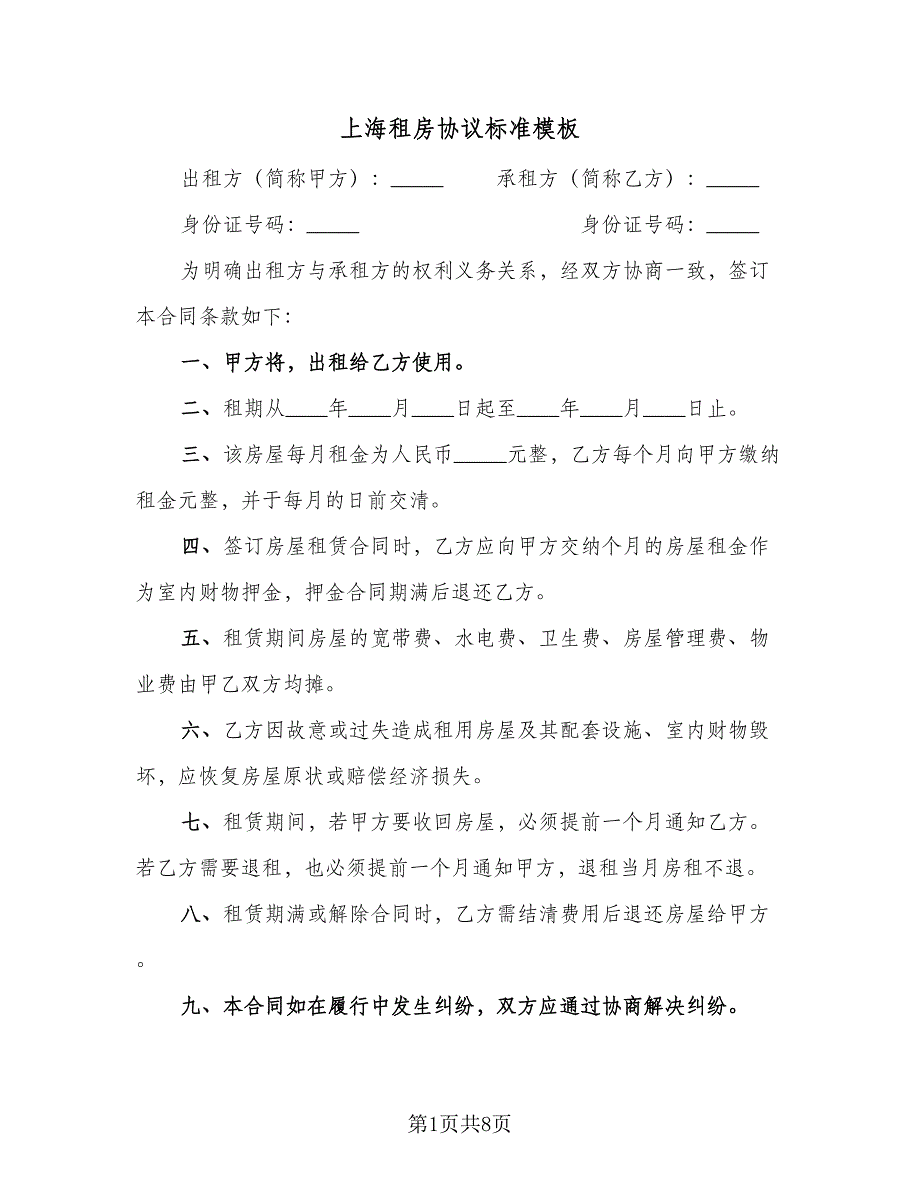 上海租房协议标准模板
出租方（简称甲方）：_____ 承租方（简称乙方）：_____
身份证号码：_____ 身份证号码：_____
为明确出租方与承租方的权利义务关系，经双方协商一致，签订
本合同条款如下：
一、甲方将，出租给乙方使用。
二、租期从____年____月____日起至____年____月____日止。
三、该房屋每月租金为人民币_____元整，乙方每个月向甲方缴纳
租金元整，并于每月的日前交清。
四、签订房屋租赁合同时，乙方应向甲方交纳个月的房屋租金作
为室内财物押金，押金合同期满后退还乙方。
五、租赁期间房屋的宽带费、水电费、卫生费、房屋管理费、物
业费由甲乙双方均摊。
六、乙方因故意或过失造成租用房屋及其配套设施、室内财物毁
坏，应恢复房屋原状或赔偿经济损失。
七、租赁期间，若甲方要收回房屋，必须提前一个月通知乙方。
若乙方需要退租，也必须提前一个月通知甲方，退租当月房租不退。
八、租赁期满或解除合同时，乙方需结清费用后退还房屋给甲方
。
九、本合同如在履行中发生纠纷，双方应通过协商解决纠纷。
第1页共8页